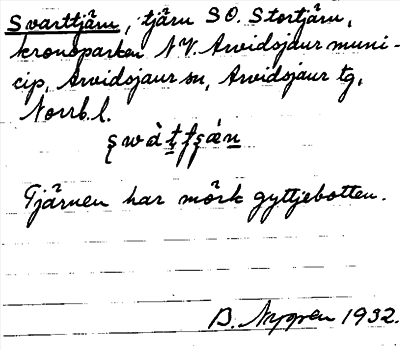 Svarttjärn, tjärn SO. Stortjärn,
kronoparken NV. Arvidsjaur muni-
cip, Arvidsjaur sn, Arvidsjaur tg,
Norrb.l.
Tjärnen har mörk gyttjebotten.
B. Nygren 1932.